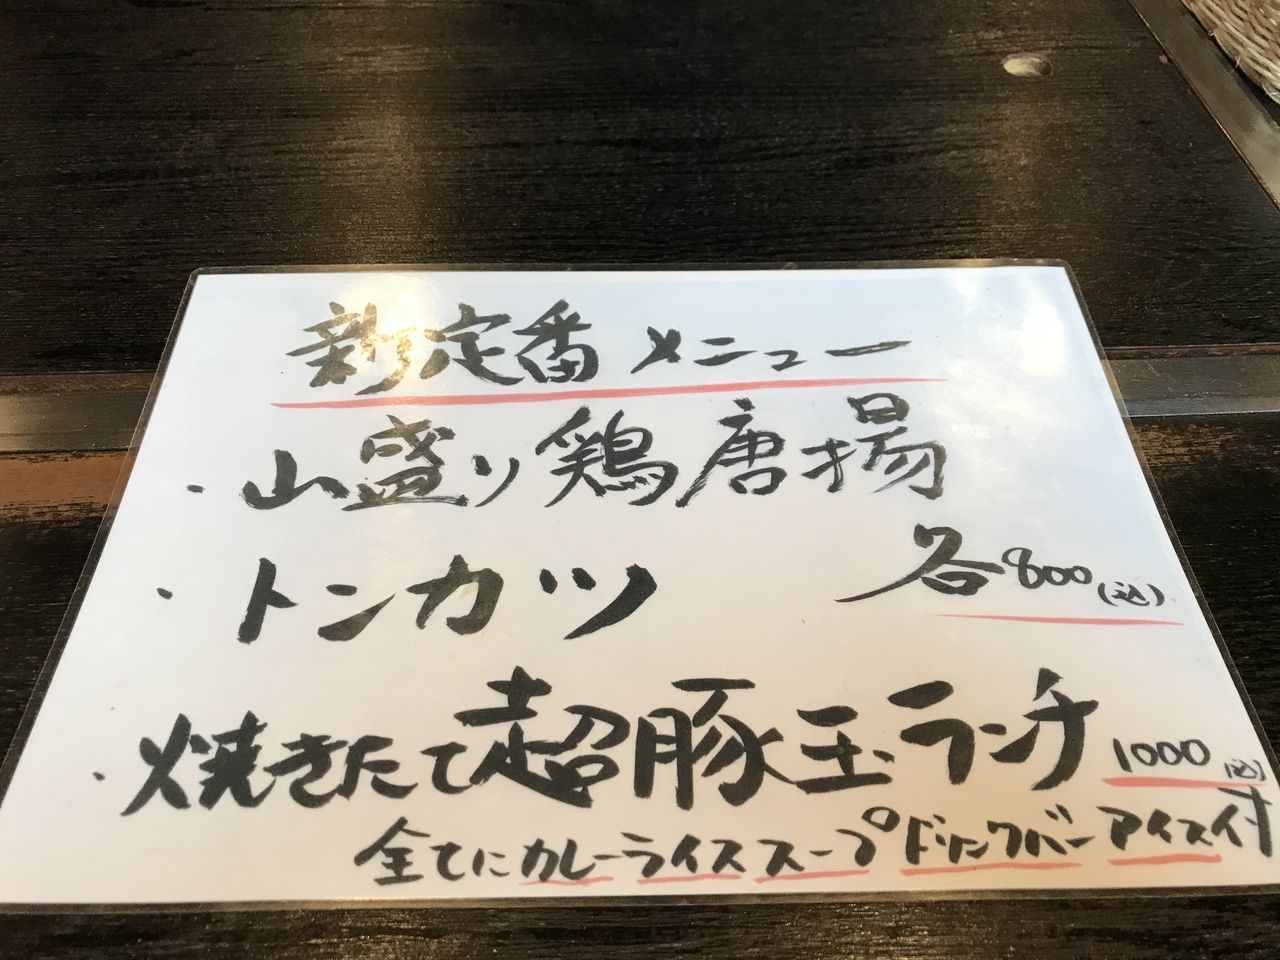 新定番メニュー
・山盛り鶏唐揚
・トンカツ 各800(込)
・焼きたて超豚玉ランチ 1000(込)
全てにカレーライススープドリンクバーアイス付